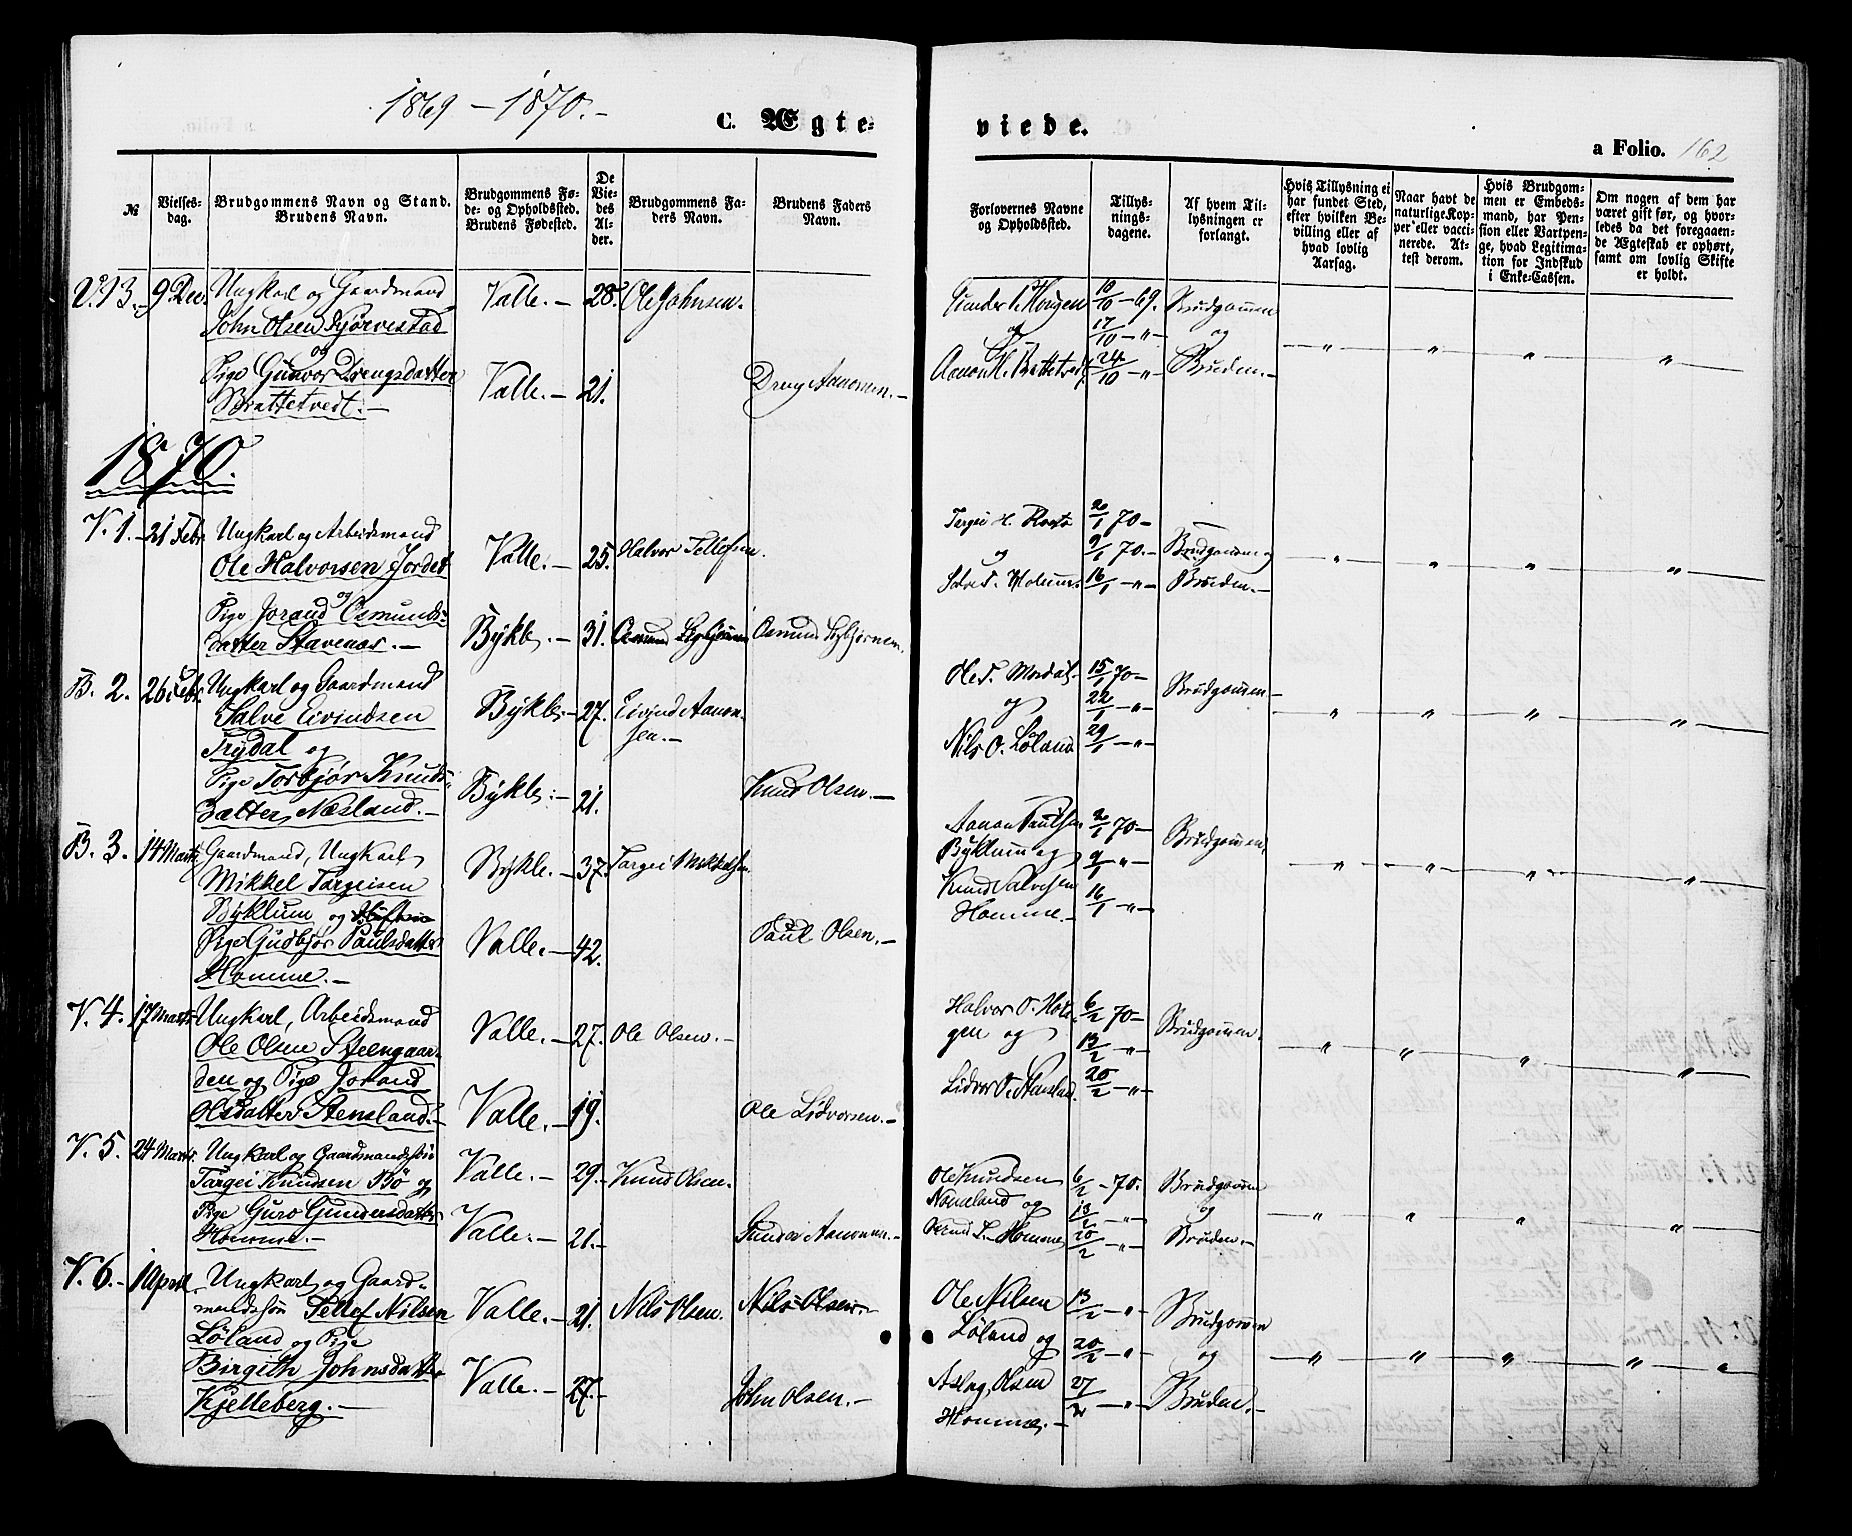 1869 – 1870. –
C. Ægte=
viede.
a Folio. 162
№
Vielses-
dag.
Brudgommens Navn og Stand.
Brudens Navn.
Brudgommens Fø-
de- og Opholdssted.
Brudens Fødested.
De
Vie-
des
Al-
der.
Brudgommens Fa-
ders Navn.
Brudens Faders
Navn.
Forlovernes Navne
og Opholdssted.
Tillys-
nings-
dagene.
Af hvem Til-
lysningen er
forlangt.
Hvis Tillysning ei
har fundet Sted,
efter hvilken Be-
villing eller af
hvad lovlig
Aarsag.
Naar havt de
naturlige Kop-
per eller vacci-
nerede. At-
test derom.
Hvis Brudgom-
men er Embeds-
mand, har Pen-
sion eller Vartpen-
ge, hvad Legitima-
tion for Indskud
i Enke-Cassen.
Om nogen af dem har
været gift før, og hvor-
ledes da det foregaaen-
de Ægteskab er ophørt,
samt om lovlig Skifte
er holdt.
V. 13. – 9 Dec. Ungkarl og Gaardmand Valle. – 28. Ole Johnsen. Gunder Haugen 10/10 – 69. Brudgommen
John Olsen og 17/10 – „ – og
og
Pige Gunvor Drengsdatter Valle. – 21. Dreng Aanonsen. – Aanon H. Brottveit 24/10 – „ Bruden. –
Brattetvedt. –
1870.
V. 1. – 21 Febr. Ungkarl og Arbeidsmand Valle. – 25. Halvor Tellefsen. Targei H. 2/1 70 –
Ole Halvorsen Jordet og 9/1 70. – Brudgommen og
og 16/1 – „ – Bruden. –
Pige Jorand Osmunds-
datter Stavenes. – Bykle. – 31. Osmund Osmund
B. 2. 26 Febr. Ungkarl og Gaardmand Bykle. – 27. Eivind Aanon- Ole T. 15/1 70 – Brudgommen –
Salve Eivindsen sen. – og 22/1 – „ –
Trydal og Nils O. Løland 29/1 – „ –
Pige Torbjør Knuds- Bykle. – 21. Knud Olsen. –
datter Næsland. –
B. 3. 14 Marts Gaardmand, Ungkarl Bykle. – 37. Targei Mikkelsen. Aanon Paulsen 2/1 70 – Brudgommen.
Mikkel Targeisen Byklum og 9/1 – „ –
Byklum og Knud Salvesen 16/1 – „ –
Pige Gudbjør Paulsdatter Valle. – 42. Paul Olsen. – Homme. –
Homme. –
V. 4. 17 Marts Ungkarl, Arbeidsmand Valle. – 27. Ole Olsen. – Halvor O. 6/2 70 – Brudgommen.
Ole Olsen Steengaar- gen og 13/2 – „ –
den og Pige Jorand Lidvor O. Stensland. 20/2 – „ –
Olsdatter Stensland. – Valle. – 19. Ole Lidvorsen. –
V. 5. 24 Marts. Ungkarl og Gaardmandssøn Valle. – 29. – Knud Olsen. Ole Knudsen 6/2 – 70. Brudgommen
Targei Knudsen Bø og og 13/2 – „ – og
Pige Guro Gundersdatter Valle. – 21. – Gunder Aanonsen. – Homme 20/2 – „ – Bruden. –
Homme. –
V. 6. – 1 April Ungkarl og Gaard- Ole Nilsen 13/2 – „ Brudgommen
mandssøn Tellef Nilsen Valle. – 21. Nils Olsen. Nils Olsen.
Løland og Pige Løland og 20/2 – „ – og
Birgith Johnsdatter Valle. – 27. – John Olsen. – Aslag Olsen 27/2 – „ – Bruden. –
Kjelleberg. – Homme. –